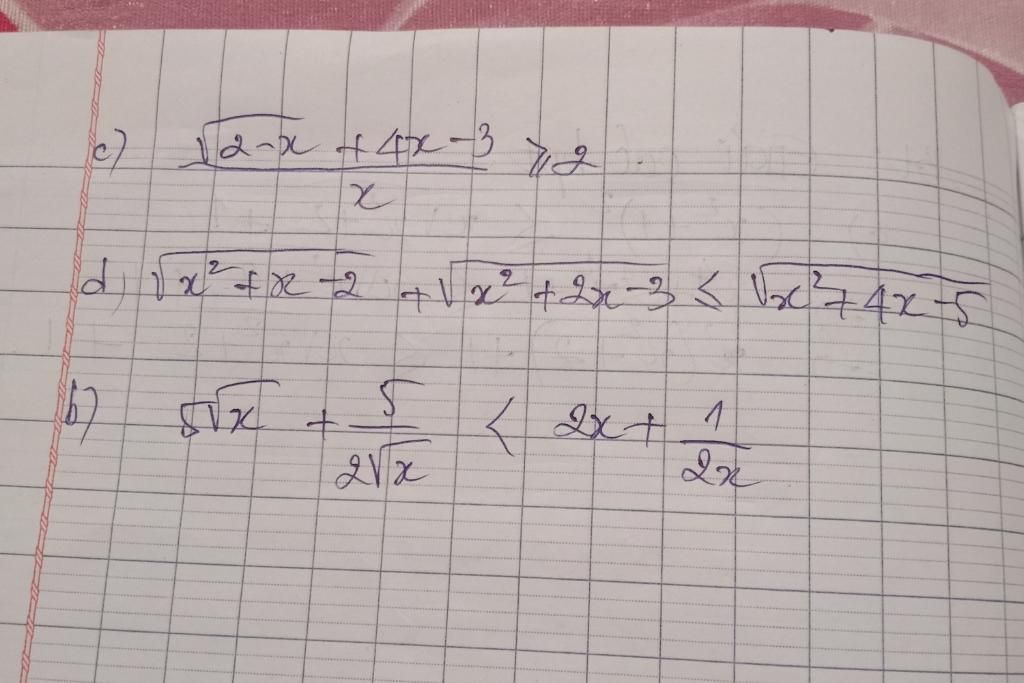 c) \frac{\sqrt{2-x} + 4x - 3}{x} ⩾ 2
d) \sqrt{x^2 + x - 2} + \sqrt{x^2 + 2x - 3} ≤ \sqrt{x^2 + 4x - 5}
b) 5\sqrt{x} + \frac{5}{2\sqrt{x}} < 2x + \frac{1}{2x}